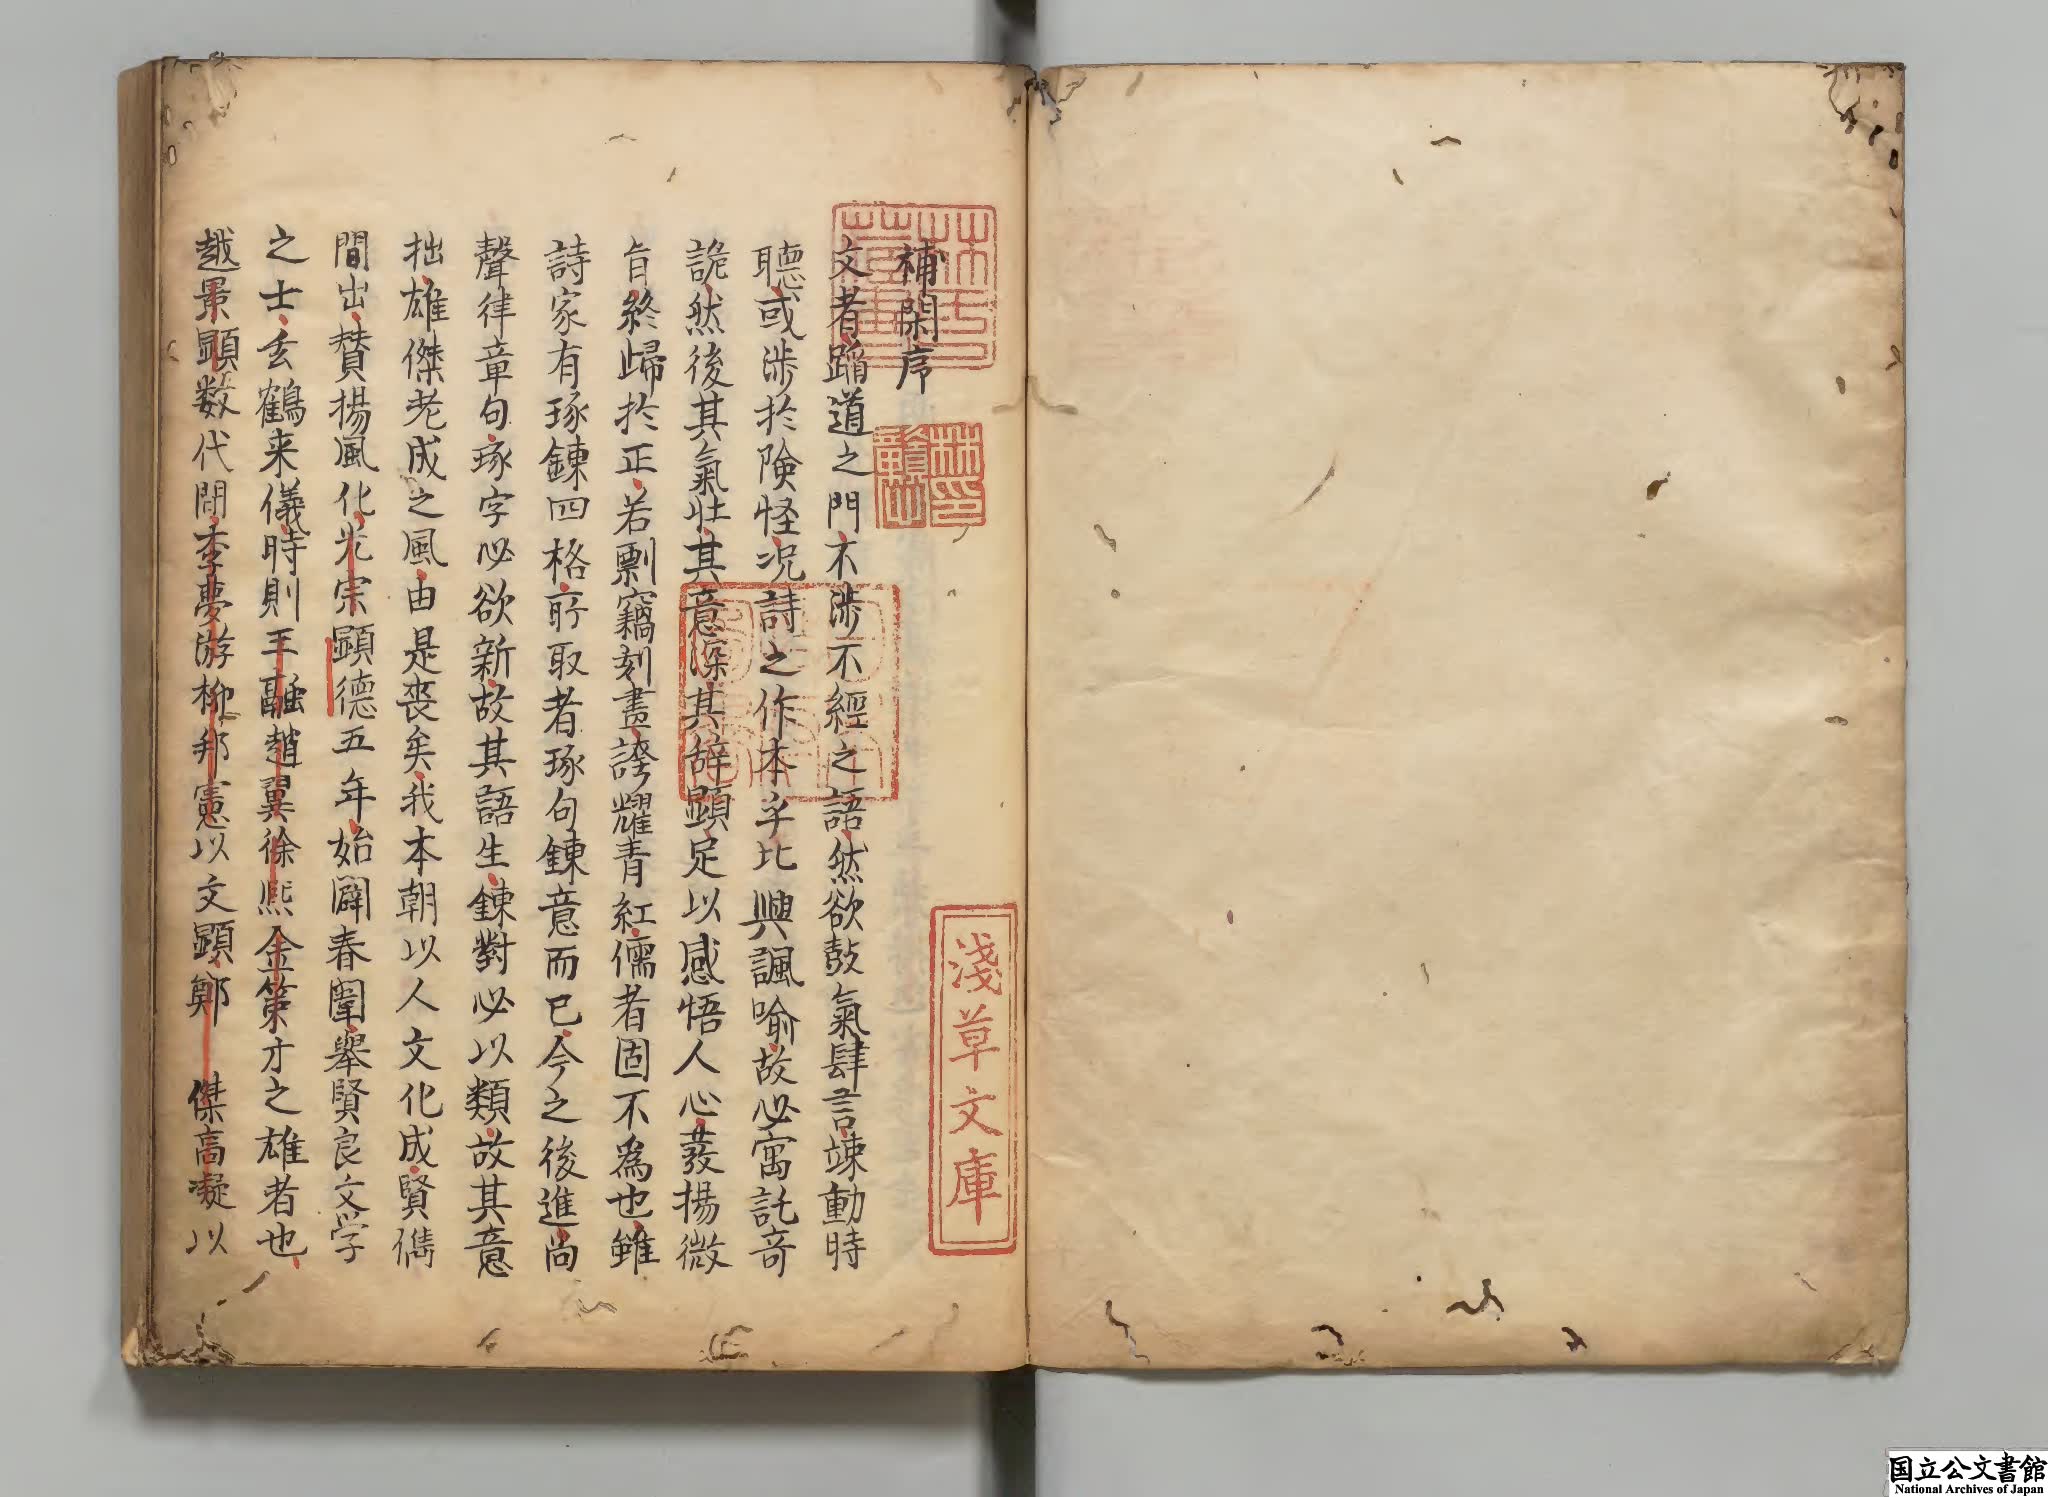 補閑序
文者蹈道之門不涉不經之語然欲鼓氣肆言竦動時
聽或涉於險怪况詩之作本乎比興諷喻故必寓託奇
詭然後其氣壯其意深其辞顕足以感悟人心發揚微
旨終歸於正若剽竊刻畫誇耀青紅儒者固不為也雖
詩家有琢鍊四格所取者琢句鍊意而已今之後進尚
聲律章句琢字必欲新故其語生鍊對必以類故其意
拙雄傑老成之風由是喪矣我本朝以人文化成賢儁
間出賛揚風化光宗顕德五年始闢春闈舉賢良文学
之士玄鶴来儀時則王融趙翼徐熙金策才之雄者也
越景顕数代間李夢游柳邦憲以文顕鄭 傑高凝以
淺草文庫
国立公文書館
National Archives of Japan